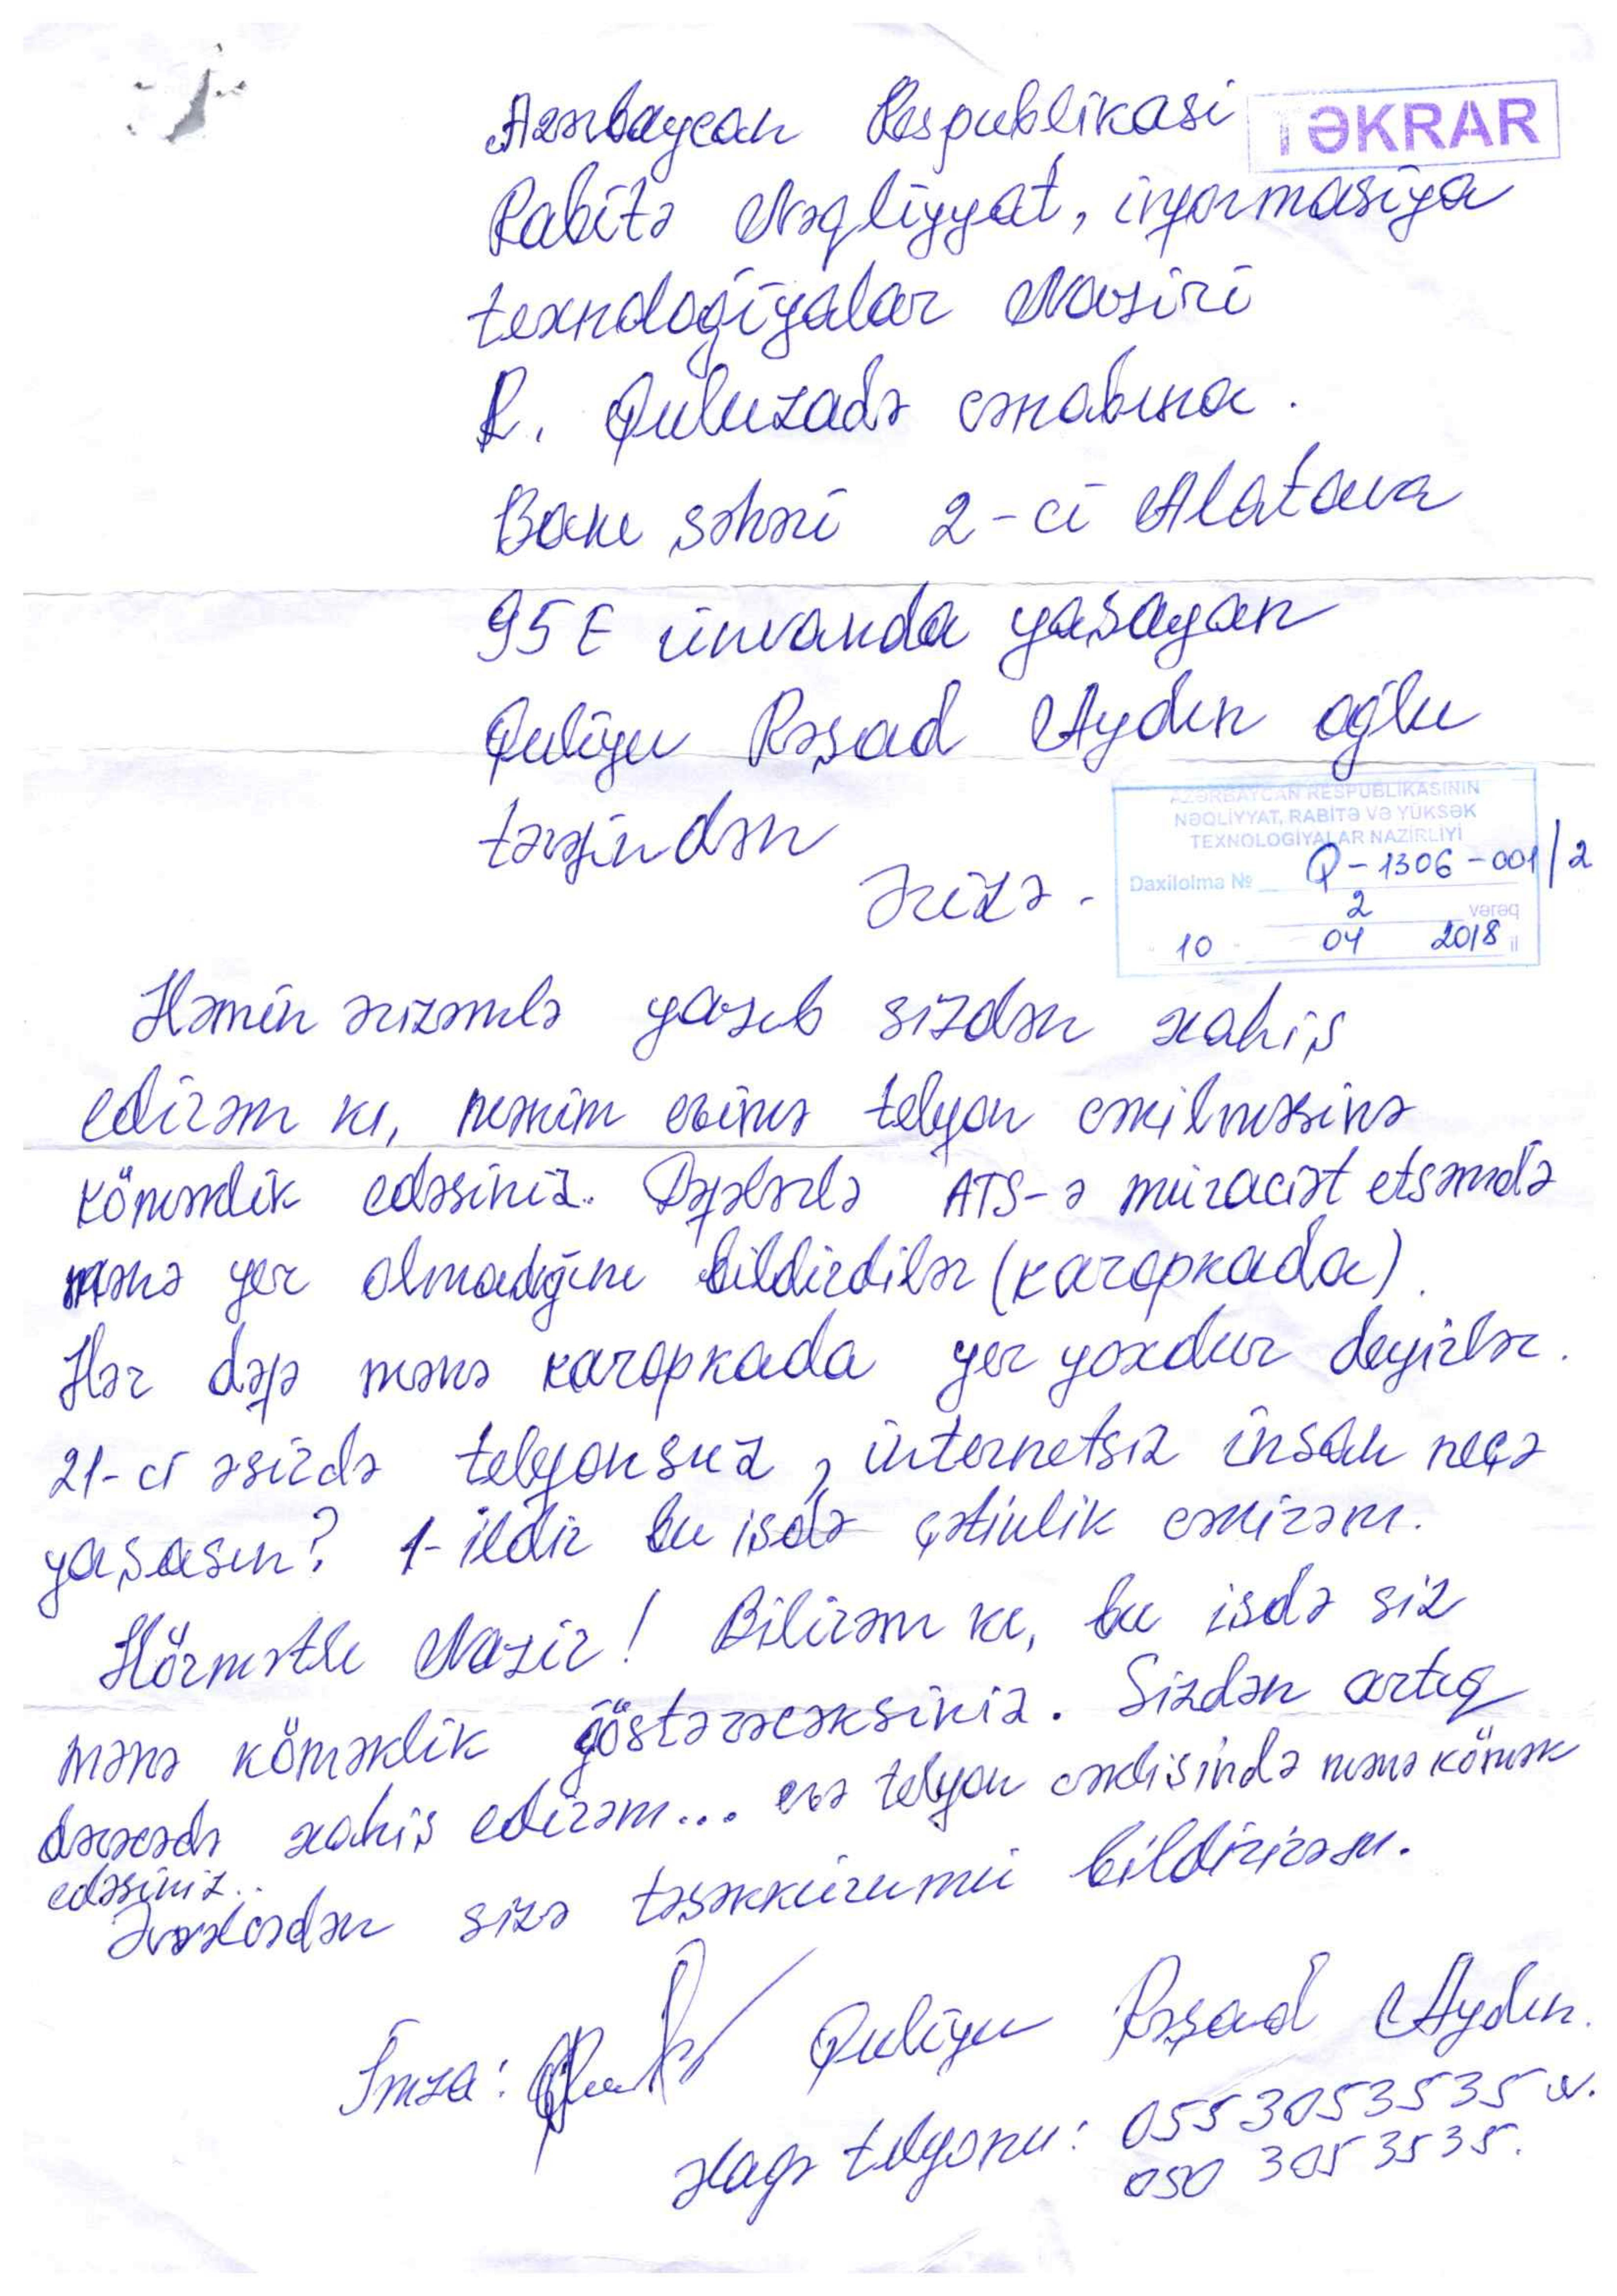 Azərbaycan Respublikasi
TƏKRAR
Rabitə Nəqliyyat, informasiya
texnologiyalar Naziri
R. Quluzadə cənabına.
Bakı şəhəri 2-ci Alatava
95 E ünvanda yaşayan
Quliyev Rəşad Aydın oğlu
tərəfindən
AZƏRBAYCAN RESPUBLİKASININ
NƏQLİYYAT, RABİTƏ VƏ YÜKSƏK
TEXNOLOGİYALAR NAZİRLİYİ
Daxilolma № Q-1306-001/2
2 vərəq
10 04 2018 il
Ərizə -
Həmin ərizəmlə yazıb sizdən xahiş
edirəm ki, mənim evimə telefon çəkilməsinə
köməklik edəsiniz. Dəfələrlə ATS-ə müraciət etsəmdə
mənə yer olmadığını bildirdilər (karopkada).
Hər dəfə mənə karopkada yer yoxdur deyirlər.
21-ci əsirdə telefonsuz, internetsiz insan neçə
yaşasın? 1-ildir bu işdə çətinlik çəkirəm.
Hörmətli Nazir! Bilirəm ki, bu işdə siz
mənə köməklik göstərəcəksiniz. Sizdən artıq
dərəcədə xahiş edirəm... evə telefon çəkilişində mənə kömək
edəsiniz..
Əvvəlcədən sizə təşəkkürümü bildirirəm.
İmza: Quliyev Rəşad Aydın.
əlaqə telefonu: 055 305 35 35 w.
050 305 35 35.